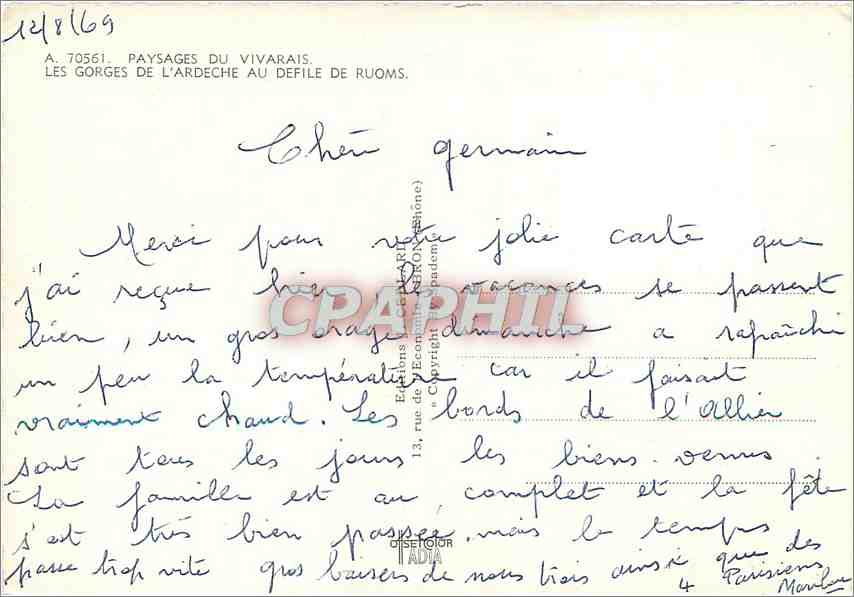 12/8/69
A. 70561. PAYSAGES DU VIVARAIS.
LES GORGES DE L'ARDECHE AU DEFILE DE RUOMS.
Chéri germain
Merci pour votre jolie carte que
j'ai reçue hier les vacances se passent
bien, un gros orage dimanche a rafraîchi
un peu la température car il faisait
vraiment chaud. Les bords de l'Allier
sont tous les jours les biens venus
La famille est au complet et la fête
s'est très bien passée, mais le temps
passe trop vite gros baisers de nous trois ainsi que des
4 Parisiens
Marilou
CPAPHIL
Editions
13, rue de l'Economie, BRON (Rhône)
« Copyright By Spadem »
OFFSETCOLOR
IADIA